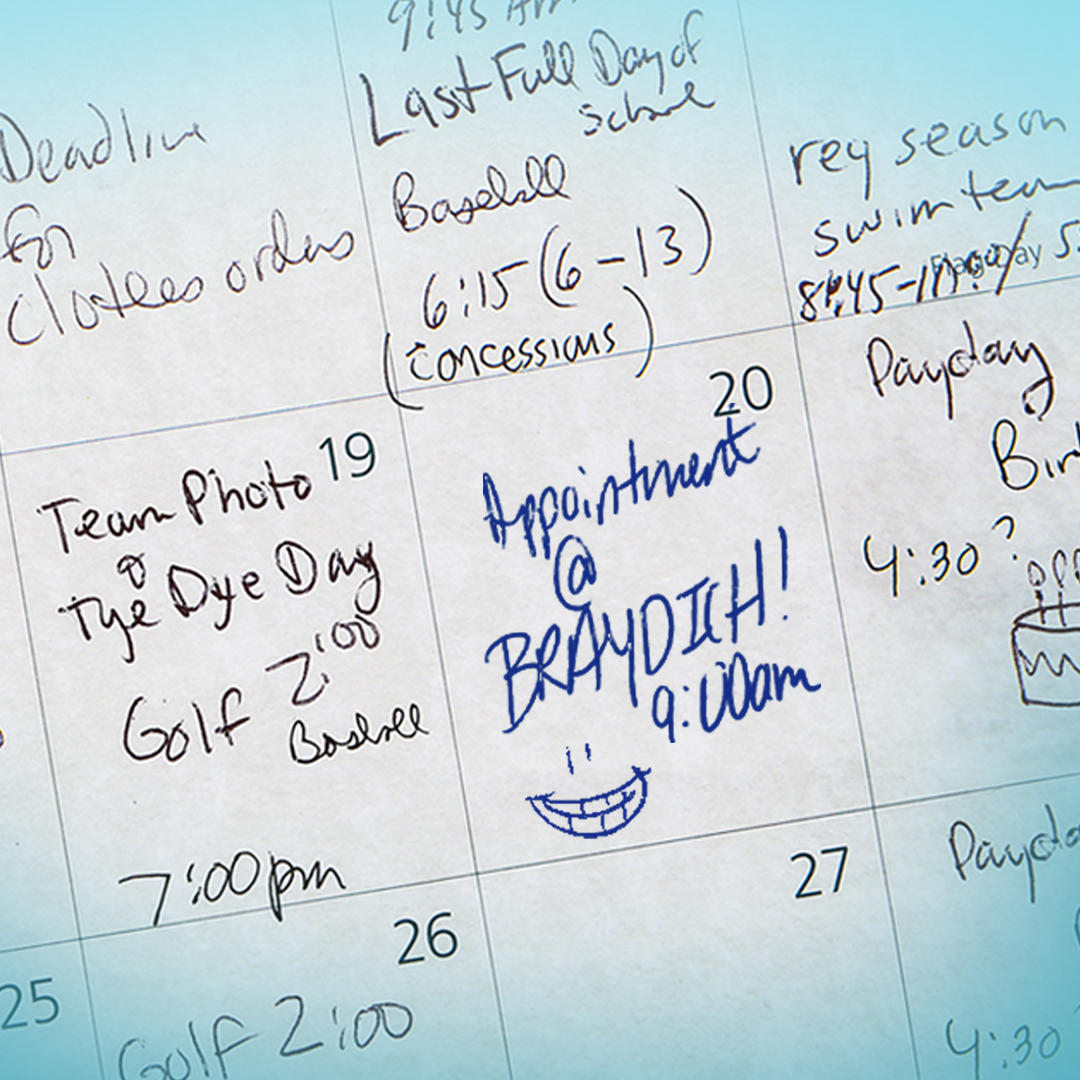 Deadline
for
Clothes orders
9:45 Am
Last Full Day of
School
Baseball
6:15 (6-13)
(concessions)
reg season
swim team
8:45-11:
Flag Day
19
Team Photo
&
Tye Dye Day
Golf 2:00
Baseball
7:00pm
20
Appointment
@
BRAYDICH!
9:00am
Payday
Birt
4:30?
25
26
Golf 2:00
27
Payda
4:30